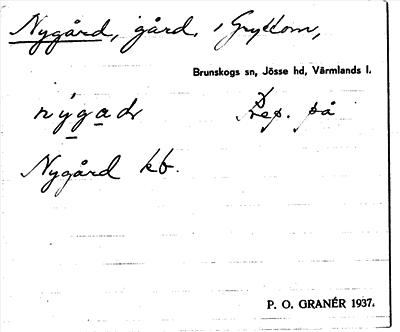 Nygård, gård i Gryttom,
Brunskogs sn, Jösse hd, Värmlands l.
nýgadr Rep. på
Nygård kb.
P. O. GRANÉR 1937.